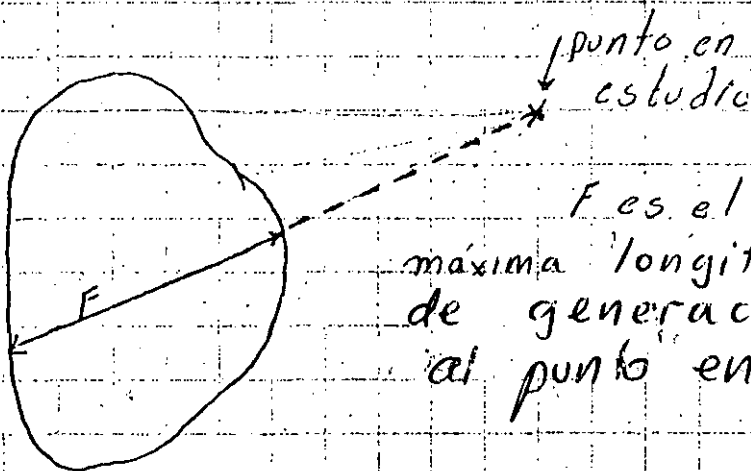 punto en
estudio
F es el
máxima longit
de generac
al punto en
F